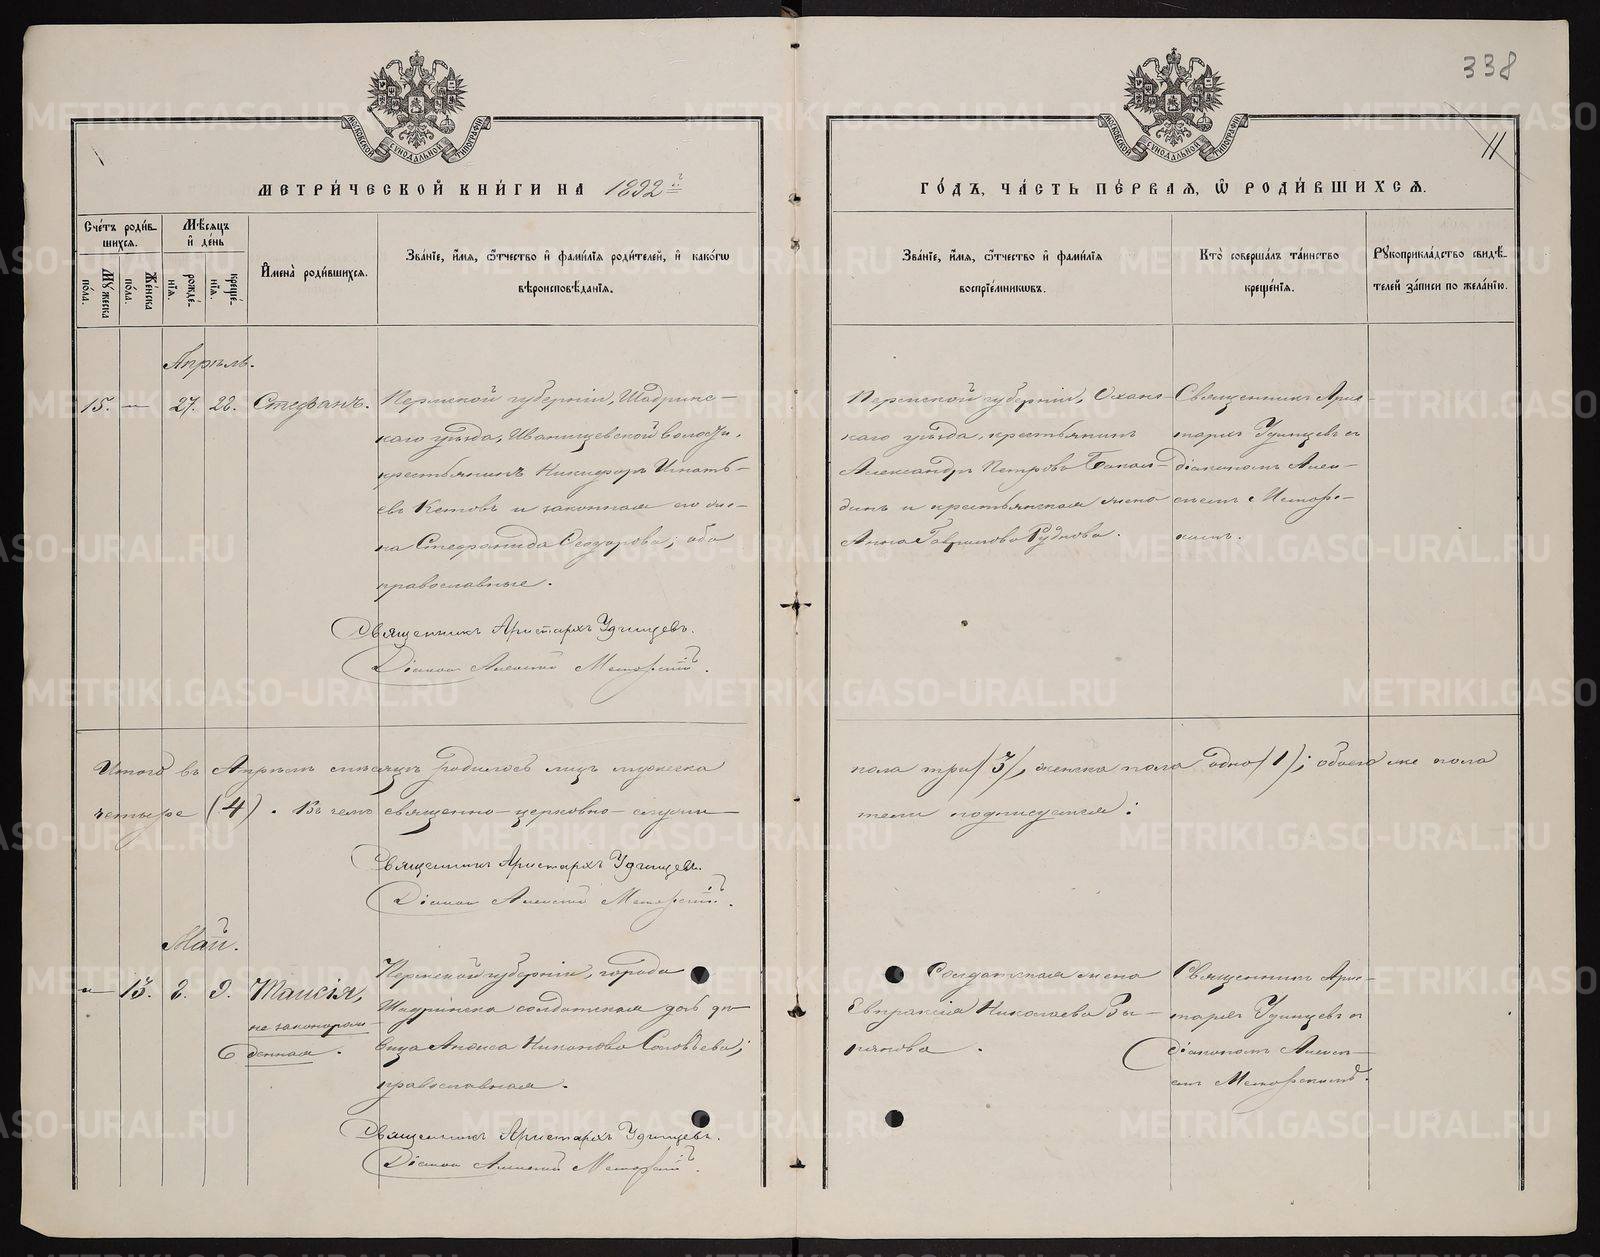 338
11
МЕТРИ́ЧЕСКОЙ КНИ́ГИ НА 1892 г.
ГО́ДЪ, ЧА́СТЬ ПЕ́РВАЯ, Ѽ РОДИ́ВШИХСЯ.
МОСКОВСКОЙ СѴНОДАЛЬНОЙ ТИПОГРАФІИ
МОСКОВСКОЙ СѴНОДАЛЬНОЙ ТИПОГРАФІИ
Сче́тъ роди́в-
шихся.
Му́жеска по́ла.
Же́нска по́ла.
Мѣ́сяцъ
и҆ де́нь
рожде́-
нїя.
креще́-
нїя.
И҆мена̀ роди́вшихся.
Зва́нїе, и҆́мя, ѻ҆́тчество и҆ фами́лїя роди́телей, и҆ како́гѡ
вѣроисповѣ́данїя.
Зва́нїе, и҆́мя, ѻ҆́тчество и҆ фами́лїя
воспрїе́мникѡвъ.
Кто̀ соверша́лъ та́инство
креще́нїя.
Рꙋкоприкла́дство свидѣ́-
телей за́писи по жела́нїю.
Апрѣль.
15. — 27. 28. Стефанъ.
Пермской губерніи, Шадринс-
каго уѣзда, Иванищевской волости,
крестьянинъ Никифоръ Игнать-
евъ Кетовъ и законная его же-
на Стефанида Федорова; оба
православные.
Священникъ Аристархъ Удинцевъ.
Діаконъ Алексій
Пермской губерніи, Оханс-
каго уѣзда, крестьянинъ
Александръ Петровъ
и крестьянская жена
Анна Гаврилова Рудкова.
Священникъ Арис-
тархъ Удинцевъ съ
діакономъ Алек-
сѣемъ
Итого въ Апрѣлѣ мѣсяцѣ родилось лицъ мужеска
пола три (3), женска пола одно (1); обоего же пола
четыре (4). Въ чемъ священно-церковно-служи-
тели подписуемся:
Священникъ Аристархъ Удинцевъ.
Діаконъ Алексій
Май.
— 13. 8. 9. Таисія,
незаконорож-
денная.
Пермской губерніи, города
Шадринска солдатская дочь дѣ-
вица Анфиса Никонова Соловьева;
православная.
Священникъ Аристархъ Удинцевъ.
Діаконъ Алексій
Солдатская жена
Евпраксія Николаева Зы-
рянова.
Священникъ Арис-
тархъ Удинцевъ съ
діакономъ Алексѣ-
емъ
METRIKI.GASO-URAL.RU